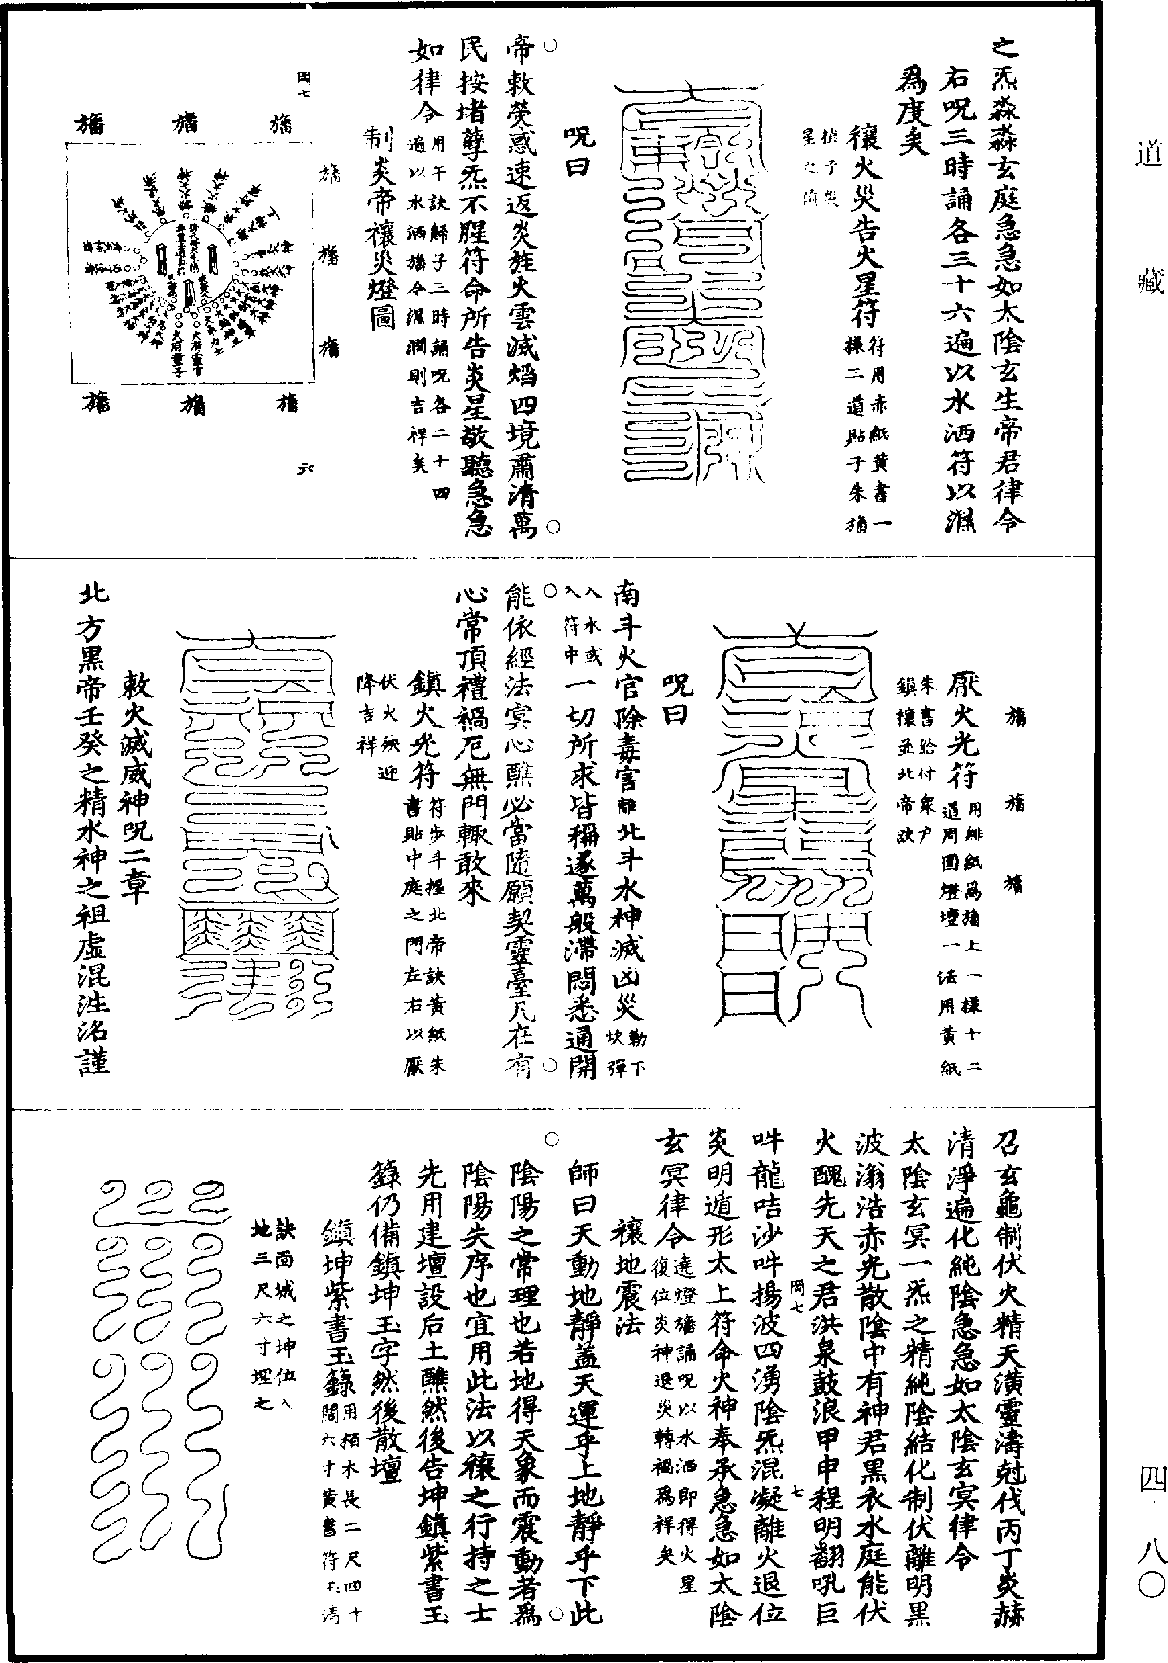 道藏
四·八〇
之炁淼淼玄庭急急如太陰玄生帝君律令
右呪三時誦各三十六遍以水洒符以濕
為度矣
禳火災告火星符
符用赤紙黃書一
樣二道貼于朱旛
呪曰
帝敕熒惑速返炎旌火雲滅焰四境肅清萬
民按堵孽炁不腥符命所告炎星敬聽急急
如律令
用午訣解子三時誦呪各二十四
遍以水洒旛令濕潤則吉祥矣
制炎帝禳災燈圖
旛 旛 旛
旛
旛
旛
旛 旛 旛
旛 旛 旛
厭火光符
用緋紙為旛上一樣十二
道周圍燈壇一法用黃紙
朱書給付眾戶
鎮攘並北帝訣
呪曰
南斗火官除毒害
離
北斗水神滅凶災
勒下
炊彈
入水或
入符中
一切所求皆稱遂萬般滯悶悉通開
能依經法冥心醮必當隨願契靈臺凡在有
心常頂禮禍厄無門輙敢來
鎮火光符
符步斗握北帝訣黃紙朱
書貼中庭之門左右以厭
伏火殃迎
降吉祥
敕火滅威神呪二章
北方黑帝壬癸之精水神之祖虛混泩洺謹
召玄龜制伏火精天潢靈濤尅伐丙丁炎赫
清淨遍化純陰急急如太陰玄冥律令
太陰玄冥一炁之精純陰結化制伏離明黑
波滃浩赤光散陰中有神君黑衣水庭能伏
火醜先天之君洪泉鼓浪甲申程明翻吼巨
吽龍咭沙吽揚波四湧陰炁混凝離火退位
炎明遁形太上符命火神奉承急急如太陰
玄冥律令
遶燈旛誦呪以水洒即得火星
復位炎神退災轉禍為祥矣
禳地震法
師曰天動地靜蓋天運乎上地靜乎下此
陰陽之常理也若地得天象而震動者為
陰陽失序也宜用此法以禳之行持之士
先用建壇設后土醮然後告坤鎮紫書玉
籙仍備鎮坤玉字然後散壇
鎮坤紫書玉籙
用栢木長二尺四寸
闊六寸黃書符
訣面城之坤位入
地三尺六寸埋之